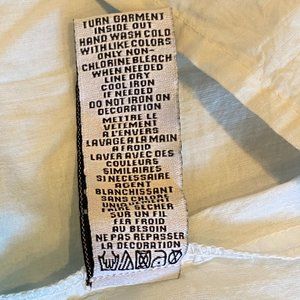 TURN GARMENT
INSIDE OUT
HAND WASH COLD
WITH LIKE COLORS
ONLY NON-
CHLORINE BLEACH
WHEN NEEDED
LINE DRY
COOL IRON
IF NEEDED
DO NOT IRON ON
DECORATION
METTRE LE
VETEMENT
A L'ENVERS
LAVAGE A LA MAIN
A FROID
LAVER AVEC DES
COULEURS
SIMILAIRES
SI NECESSAIRE
AGENT
BLANCHISSANT
SANS CHLORE
SECHER
SUR UN FIL
FER FROID
AU BESOIN
NE PAS REPASSER
LA DECORATION